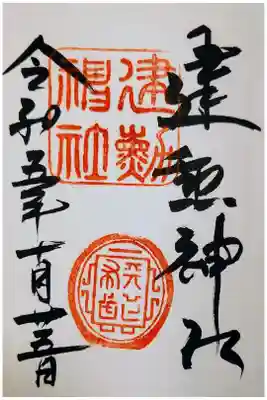 建勲神社
建勲
神社
天下
布武
令和五年十月廿五日